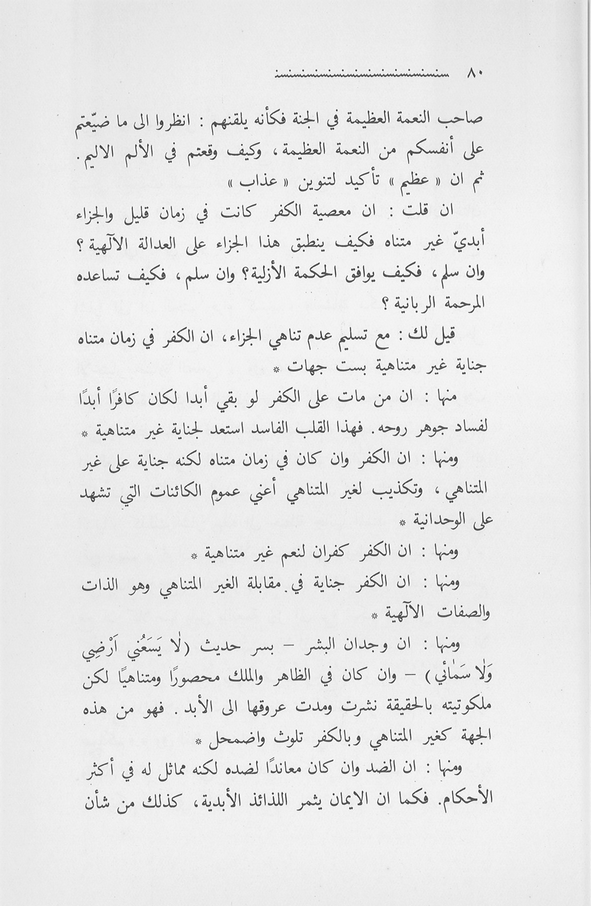 ٨٠
صاحب النعمة العظيمة في الجنة فكأنه يلقنهم : انظروا الى ما ضيّعتم
على أنفسكم من النعمة العظيمة، وكيف وقعتم في الألم الاليم.
ثم ان « عظيم » تأكيد لتنوين « عذاب »
ان قلت : ان معصية الكفر كانت في زمان قليل والجزاء
أبديّ غير متناه فكيف ينطبق هذا الجزاء على العدالة الآلهية ؟
وان سلم، فكيف يوافق الحكمة الأزلية؟ وان سلم، فكيف تساعده
المرحمة الربانية ؟
قيل لك : مع تسليم عدم تناهي الجزاء، ان الكفر في زمان متناه
جناية غير متناهية بست جهات *
منها : ان من مات على الكفر لو بقي أبدا لكان كافرًا أبدًا
لفساد جوهر روحه. فهذا القلب الفاسد استعد لجناية غير متناهية *
ومنها : ان الكفر وان كان في زمان متناه لكنه جناية على غير
المتناهي، وتكذيب لغير المتناهي أعني عموم الكائنات التي تشهد
على الوحدانية *
ومنها : ان الكفر كفران لنعم غير متناهية *
ومنها : ان الكفر جناية في مقابلة الغير المتناهي وهو الذات
والصفات الآلهية *
ومنها : ان وجدان البشر – بسر حديث (لٰا يَسَعُني اَرْضِي
وَلٰا سَمٰائي) – وان كان في الظاهر والملك محصورًا ومتناهيًا لكن
ملكوتيته بالحقيقة نشرت ومدت عروقها الى الأبد. فهو من هذه
الجهة كغير المتناهي وبالكفر تلوث واضمحل *
ومنها : ان الضد وان كان معاندًا لضده لكنه مماثل له في أكثر
الأحكام. فكما ان الايمان يثمر اللذائذ الأبدية، كذلك من شأن